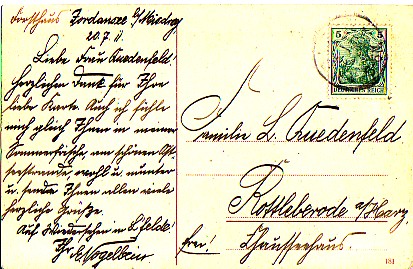 Forsthaus Jordansee b/Misdroy
20.7.11.
Liebe Frau Quedenfeld!
Herzlichen Dank für Ihre
liebe Karte. Auch ich fühle
mich gleich Ihnen in meiner
Sommerfrische am schönen Ost-
seestrande, wohl u. munter
u. sende Ihnen allen viele
herzliche Grüße.
Auf Wiedersehen in
Ihr
5 5
DEUTSCHES REICH
Familie L. Quedenfeld
Rottleberode a/Harz
frei! Chausseehaus.